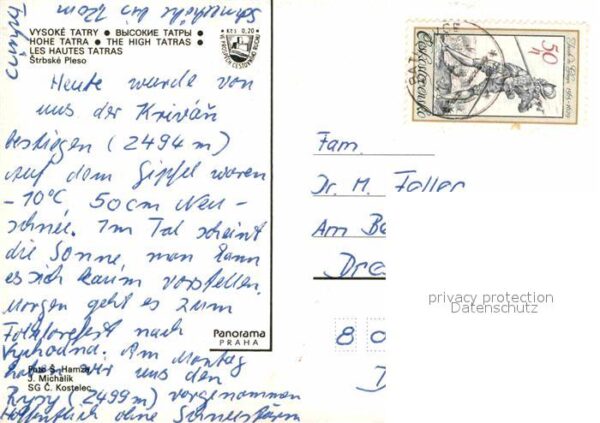 Schneehöhe bis 20cm
VYSOKÉ TATRY ● ВЫСОКИЕ ТАТРЫ ●
HOHE TATRA ● THE HIGH TATRAS ●
LES HAUTES TATRAS
Štrbské Pleso
Kčs 0,20
Heute wurde von
uns der Kriváň
bestiegen (2494 m)
Auf dem Gipfel waren
-10°C 50cm Neu-
schnee. Im Tal scheint
die Sonne, man kann
es sich kaum vorstellen.
Morgen geht es zum
Folklorefest nach
Vychodna. Am Montag
haben wir uns den
Rysy (2499 m) vorgenommen
Hoffentlich ohne Schneesturm
Foto Š. Hamza
J. Michalík
SG Č. Kostelec
Panorama
PRAHA
50 h
Československo
Fam.
Dr. M. Faller
Am Be
Dre
80
privacy protection
Datenschutz